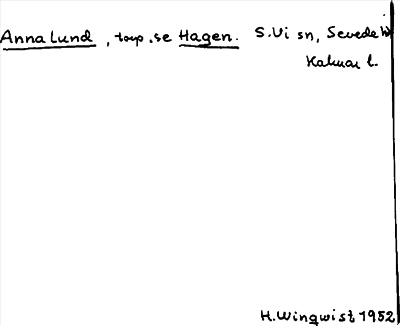 Anna Lund, torp, se Hagen. S. Vi sn, Sevede hd
Kalmar l.
H. Wingwist 1952